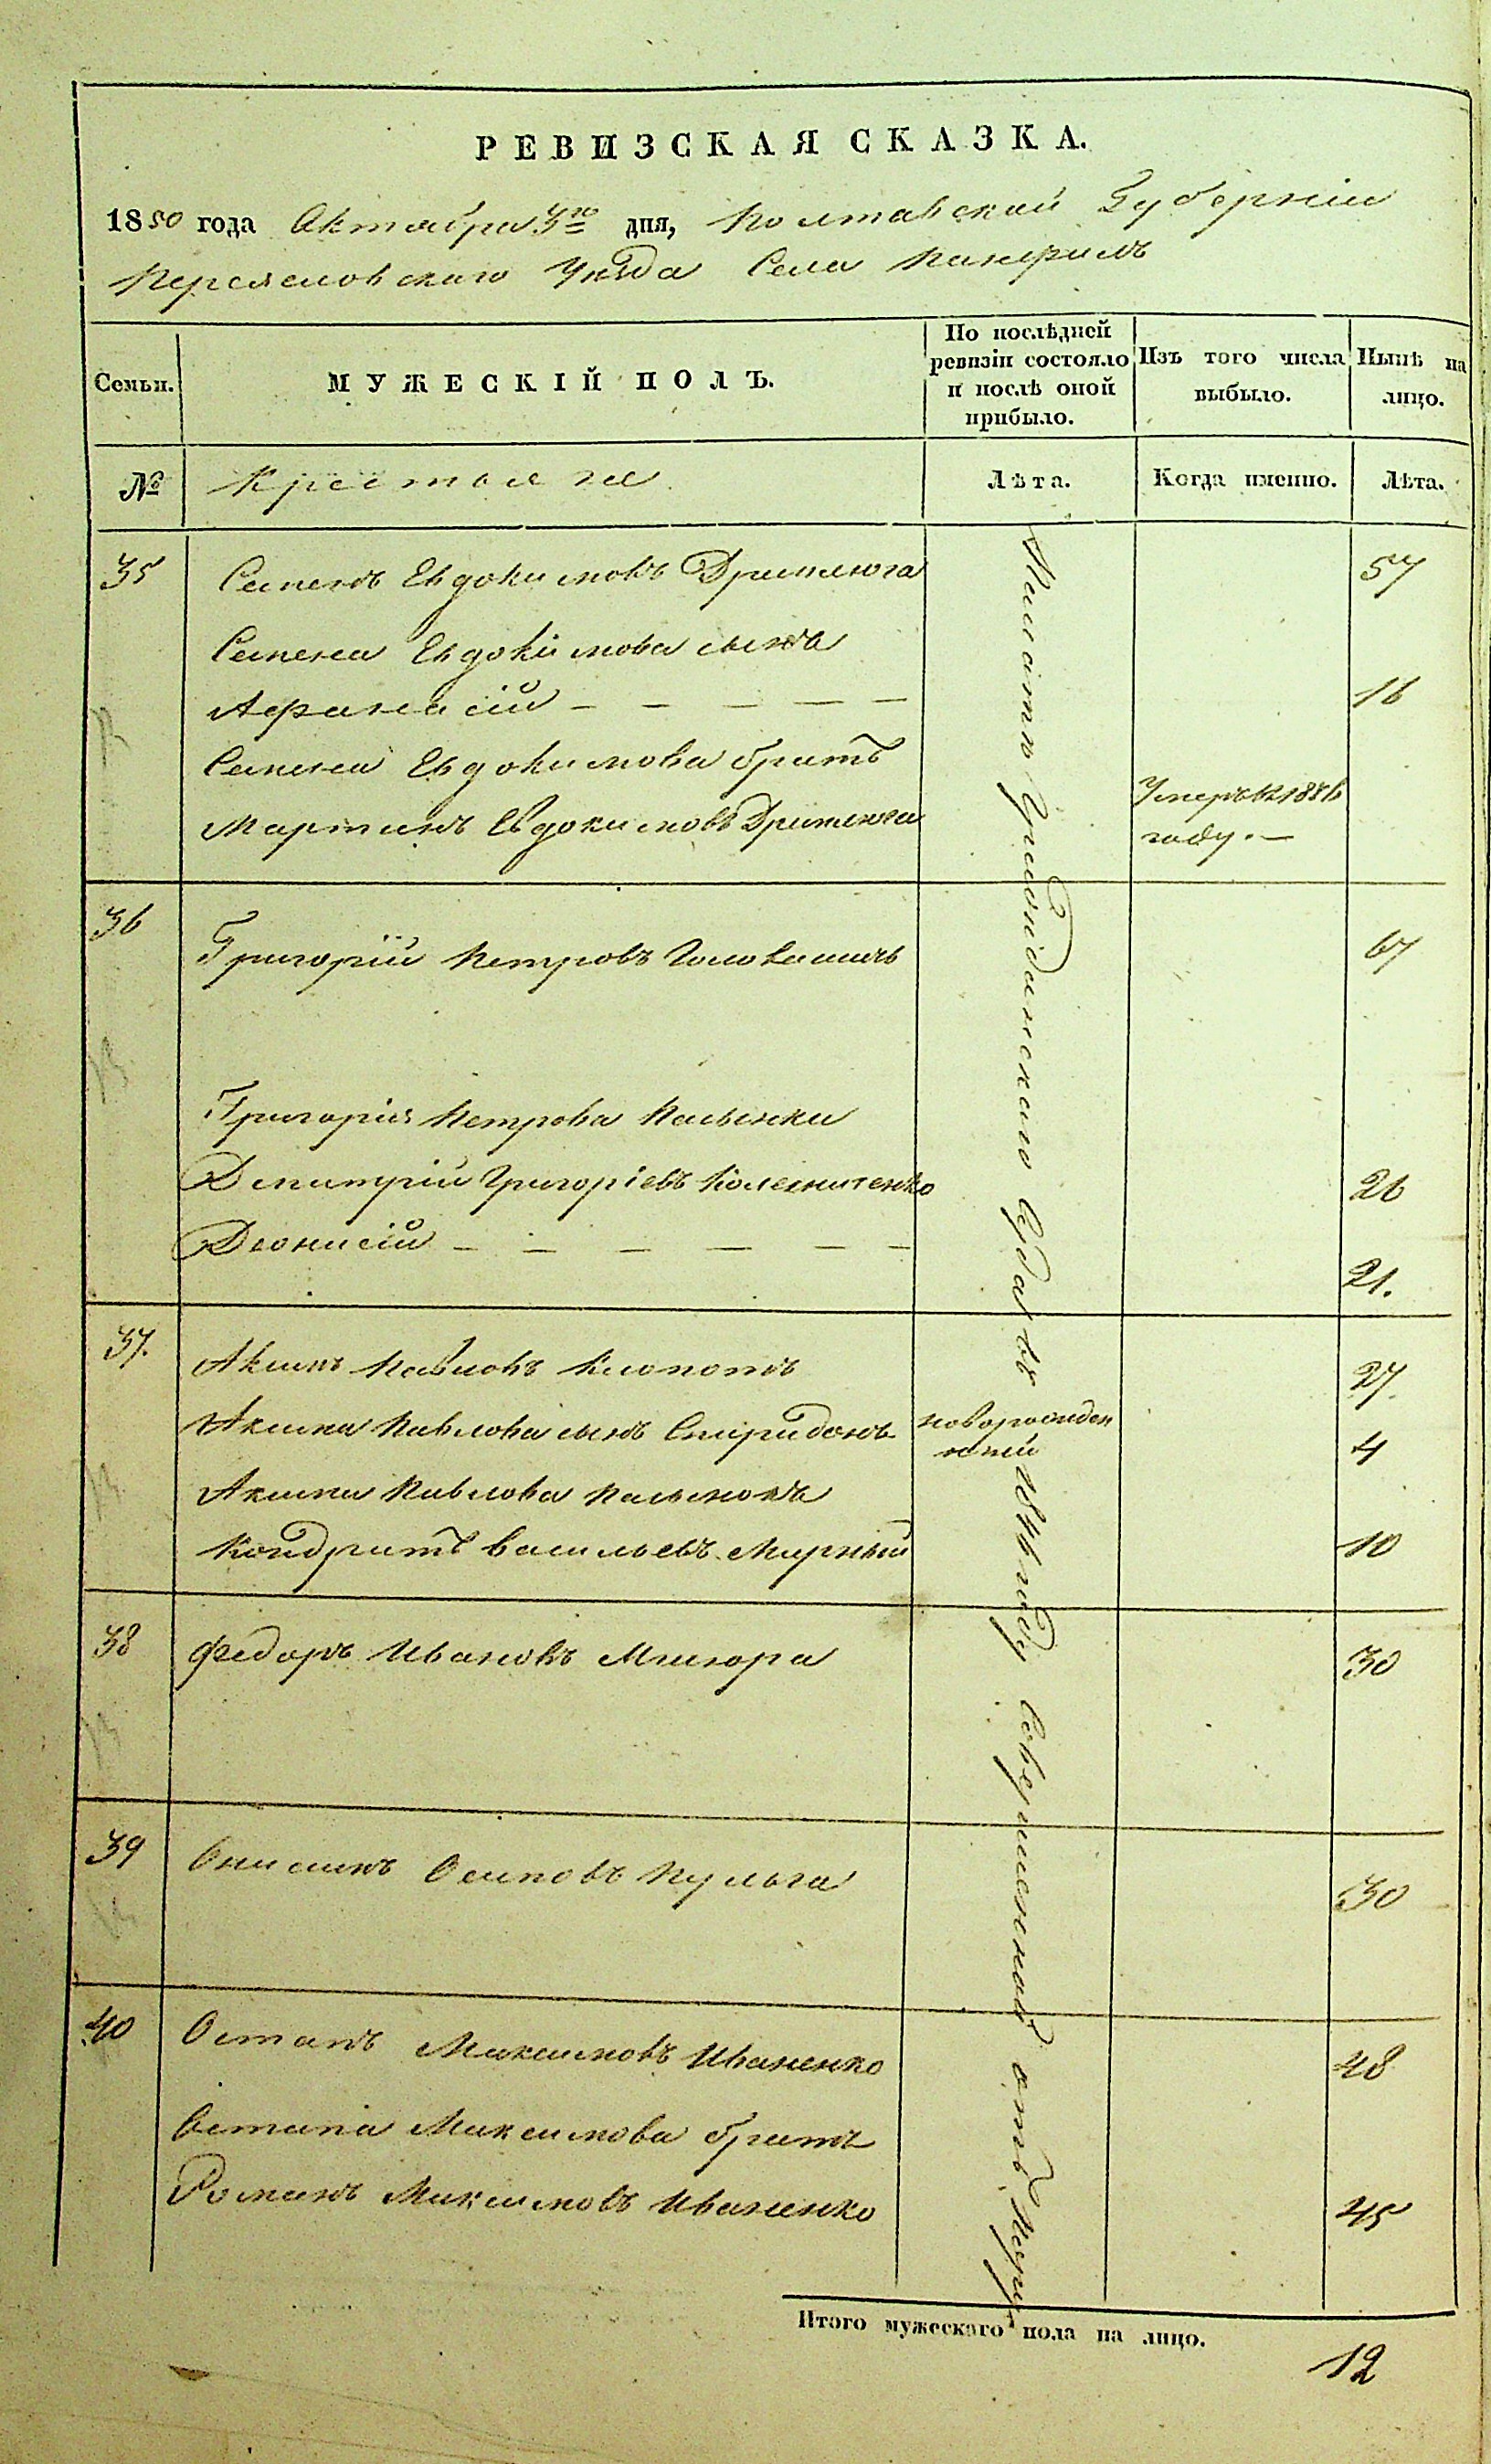 РЕВИЗСКАЯ СКАЗКА.
1850 года Октября 3го дня, Полтавской Губерніи
Переяславскаго Уѣзда Села
Семьи.
МУЖЕСКІЙ ПОЛЪ.
По послѣдней
ревизіи состояло
и послѣ оной
прибыло.
Изъ того числа
выбыло.
Нынѣ на
лицо.
№
Крестьяне
Лѣта.
Когда именно.
Лѣта.
35 Семенъ Евдокимовъ Дрименога 57
Семена Евдокимова сынъ
Афанасій — — — — — 16
Семена Евдокимова братъ
Мартинъ Евдокимовъ Дрименога Умеръ въ
году. —
36 Григорій Петровъ 67
Григорія Петрова Пасынки
Дмитрій Григоріевъ Колесниченко 26
Діонисій — — — — — — 21.
37. Акимъ Павловъ Клопотъ 27
Акима Павлова сынъ Спиридонъ новорожден 4
ный
Акима Павлова пасынокъ
Кондратъ Васильевъ Мирный 10
38 Федоръ Ивановъ 30
39 Онисимъ Осиповъ Кульга 30
40 Остапъ Максимовъ Иваненко 48
Остапа Максимова братъ
Романъ Максимовъ Иваненко 45
гражданскаго Суда въ 1844 году Совершенной отъ
Итого мужескаго пола на лицо.
12